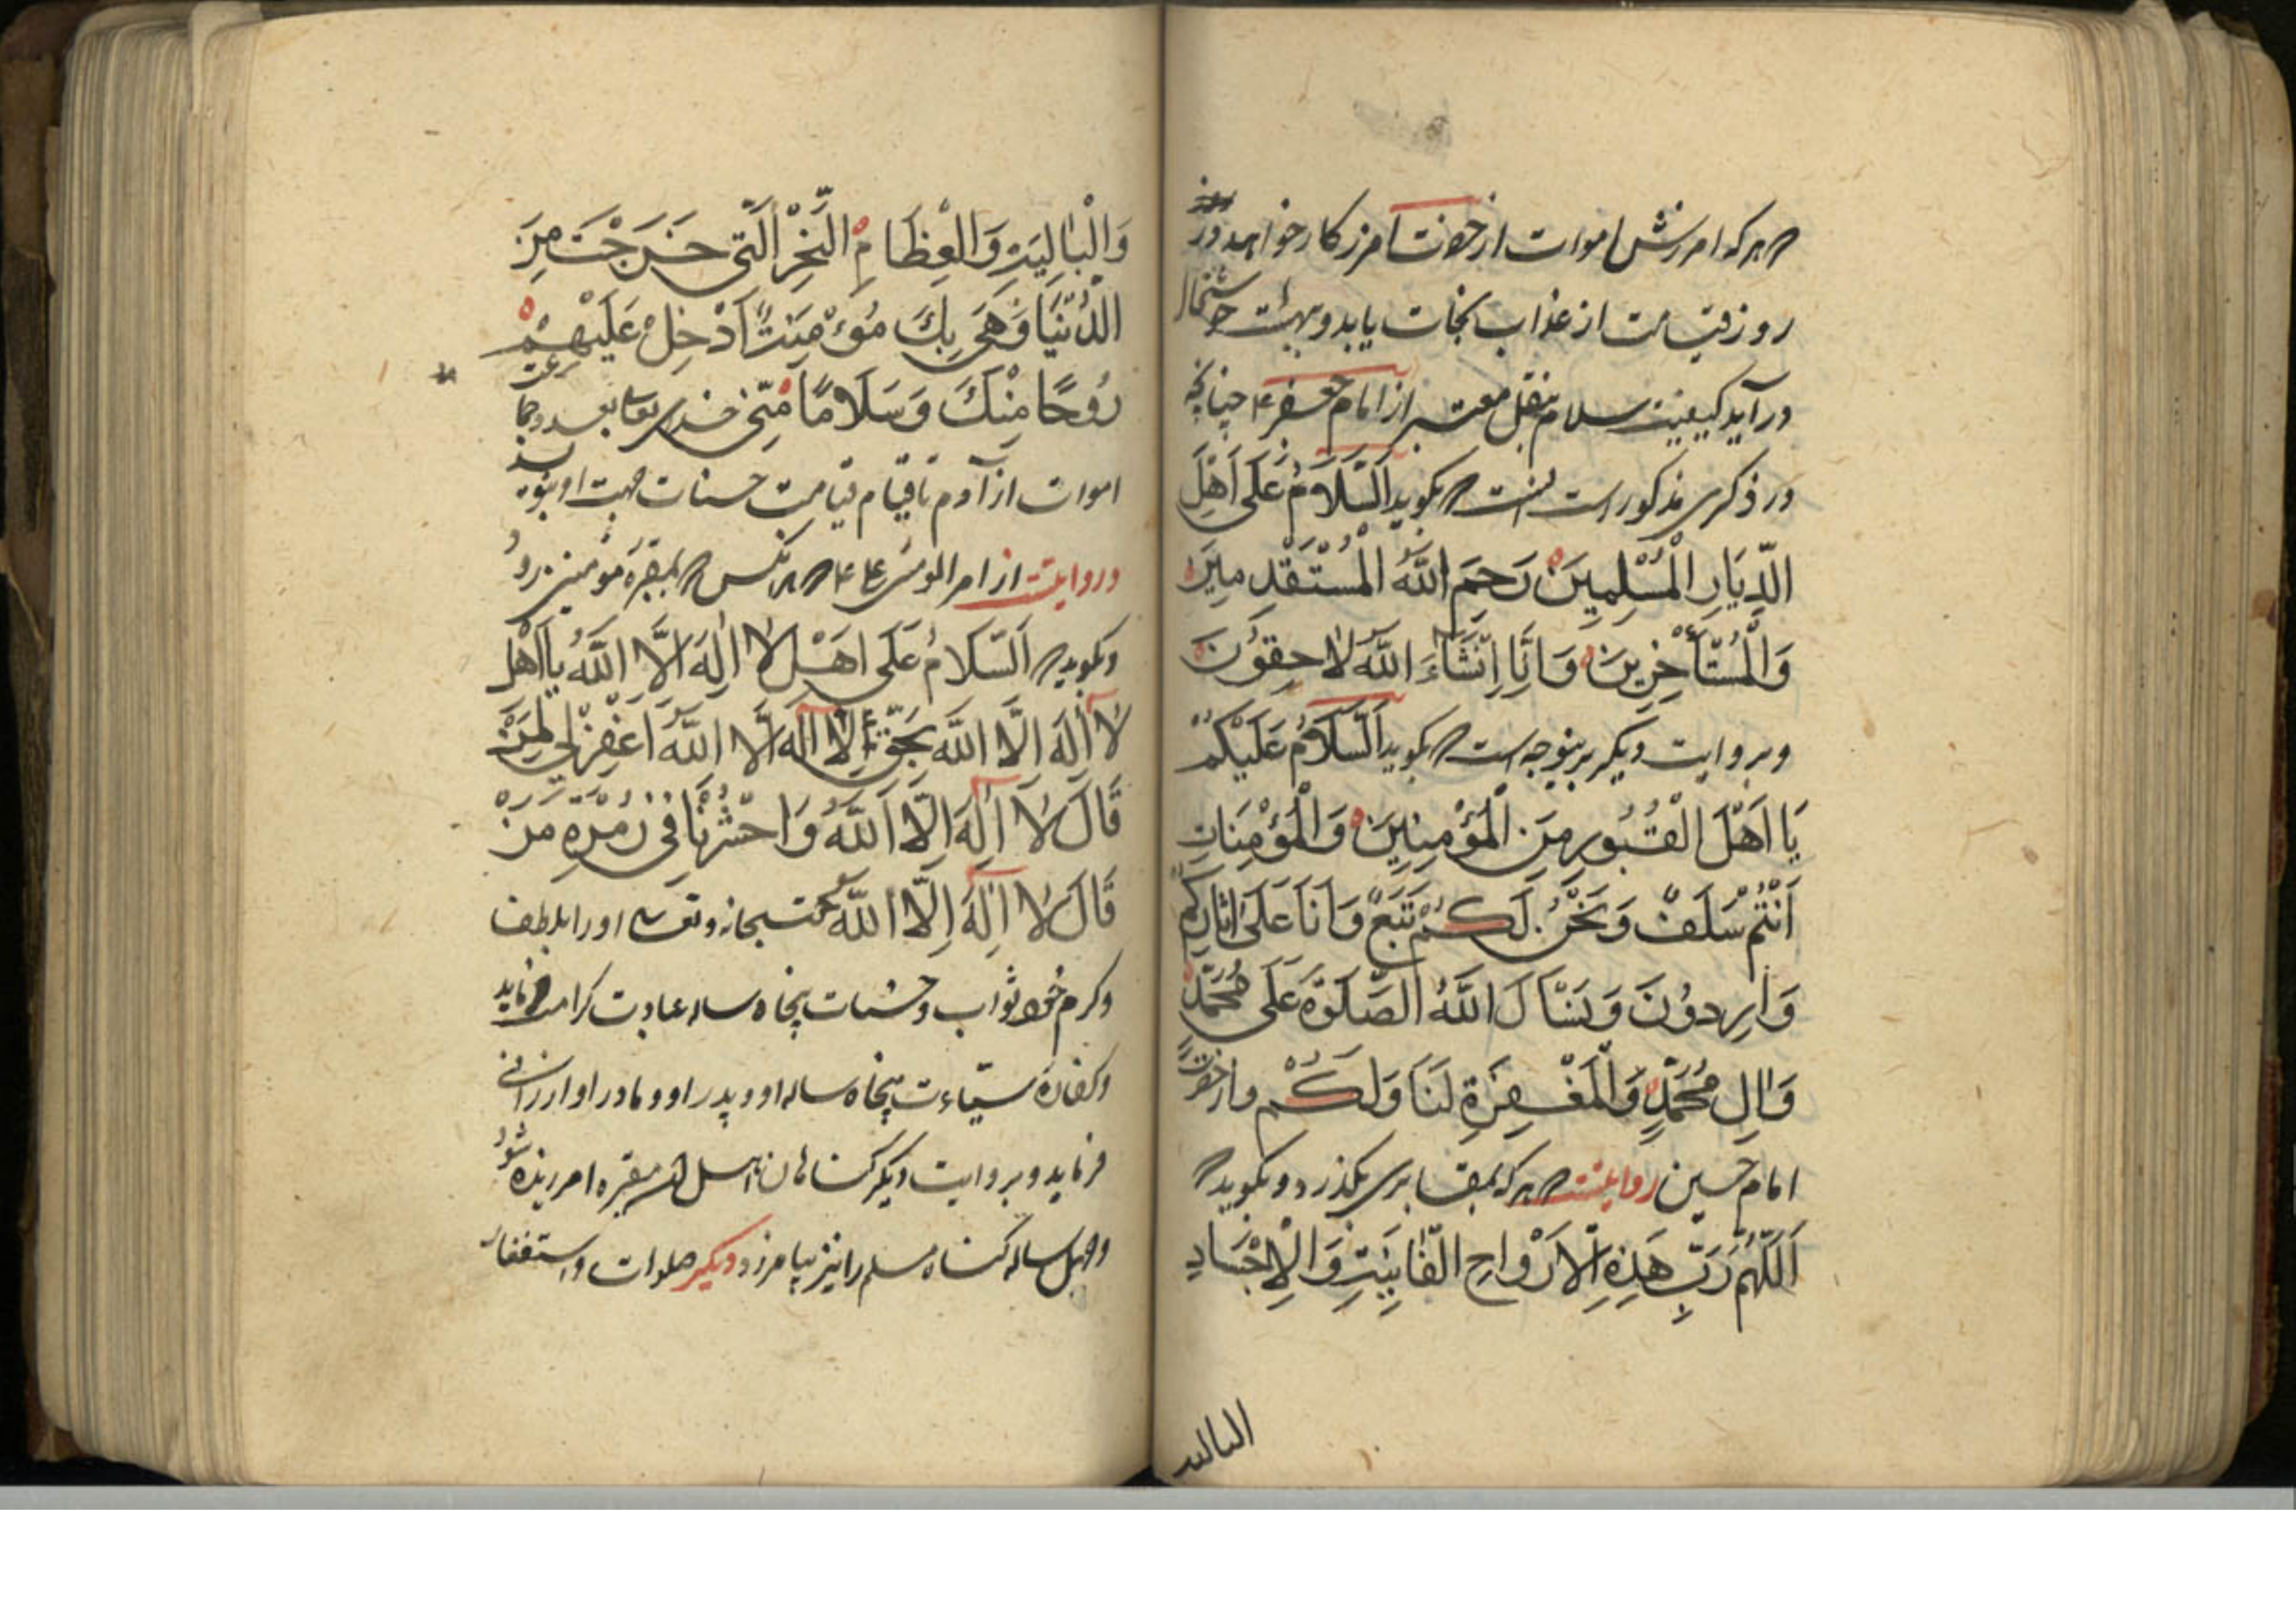 هر که امرزش اموات از حضرت امرزکار خواهد در
روز قیامت از عذاب نجات یابد و بهشت خوشحال
در آید کیفیت سلام بنقل معتبر از امام جعفر ع چنانچه
در ذکری مذکور است که بگوید اَلسَّلَامُ عَلَی اَهْلِ
الدِّیَارِ الْمُسْلِمِینَ رَحِمَ اللهُ الْمُسْتَقْدِمِینَ
وَالْمُسْتَأْخِرِینَ وَ اِنَّا اِنْشَاءَ اللهُ لَاحِقُونَ
و بروایت دیکر برینوجه است که بکوید اَلسَّلَامُ عَلَیْکُمْ
یَا اَهْلَ الْقُبُورِ مِنَ الْمُؤْمِنِینَ وَ الْمُؤْمِنَاتِ
اَنْتُمْ سَلَفٌ وَ نَحْنُ لَکُمْ تَبَعٌ وَ اَنَا عَلَی اٰثَارِکُمْ
وَارِدُونَ وَ نَسْأَلُ اللهَ الصَّلَوٰةَ عَلَی مُحَمَّدٍ
وَاٰلِ مُحَمَّدٍ وَالْمَغْفِرَةِ لَنَا وَلَکُمْ و از حضرت
امام حسین روایتست هر که بمقابری بکذرد و بکوید که
اَللّٰهُمَّ رَبَّ هَذِهِ الْاَرْوَاحِ الْفَانِیَةِ وَ الْاَجْسَادِ
البالیه
وَالْبَالِیَةِ وَالْعِظَامِ النَّخِرَ اَلَّتِی خَرَجْتَ مِنَ
الدُّنْیَا وَ هِیَ بِكَ مُؤْمِنَةٌ اَدْخِلْ عَلَیْهِمْ
رُوحًا مِنْكَ وَ سَلَامًا مِنِّی خدای تعالی بعدد جماعت
اموات از آدم تا قیام قیامت حسنات جهت او بنویسد
و روایتست از امیرالمومنین ع که هرکس که بمقبره مؤمنین رود
و بکوید که اَلسَّلَامُ عَلَی اَهْلِ لَا اِلٰهَ اِلَّا اللهُ یَا اَهْلَ
لَا اِلٰهَ اِلَّا اللهُ بِحَقِّ لَا اِلٰهَ اِلَّا اللهُ اَغْفِرْ لِمَنْ
قَالَ لَا اِلٰهَ اِلَّا اللهُ وَاحْشُرْنَا فِی زُمْرَةِ مَنْ
قَالَ لَا اِلٰهَ اِلَّا اللهُ سبحانه و تعالی او را بلطف
و کرم خود ثواب و حسنات پنجاه ساله عبادت کرامت فرماید
و کفاره سیّئات پنجاه ساله او و پدر او و مادر او ارزانی
فرماید و بروایت دیکر کناهان اهل آن مقبره امرزیده شود
و چهل ساله کناه مسلم را نیز بیامرزد دیکیر صلوات و استغفار